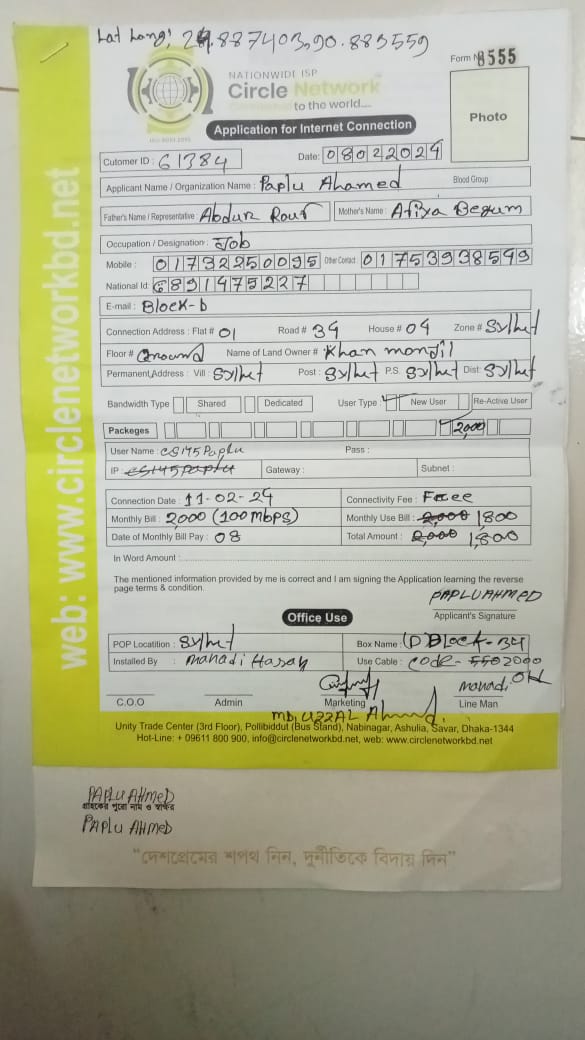 Lat Long: 24.887403,90.883559
Form № 8555
NATIONWIDE ISP
Circle Network
Connecting to the world....
ISO 9001:2015
Photo
Application for Internet Connection
Cutomer ID : 61384 Date: 08022024
Applicant Name / Organization Name : Paplu Ahamed Blood Group
Father's Name / Representative Abdur Rouf Mother's Name : Afiya Begum
Occupation / Designation : Job
Mobile : 01732250095 Other Contact 01753938599
National Id: 6891475227
E-mail : Block-b
Connection Address : Flat # 01 Road # 34 House # 04 Zone # Sylhet
Floor # Ground Name of Land Owner # Khan monjil
Permanent Address : Vill : Sylhet Post : Sylhet P.S. Sylhet Dist: Sylhet
Bandwidth Type Shared Dedicated User Type New User Re-Active User
Packeges 2,000
User Name : CS145Paplu Pass :
IP : CS145Paplu Gateway : Subnet :
Connection Date : 11-02-24 Connectivity Fee : Free
Monthly Bill : 2000 (100mbps) Monthly Use Bill : 2,000 1,800
Date of Monthly Bill Pay : 08 Total Amount : 2,000 1,800
In Word Amount :
The mentioned information provided by me is correct and I am signing the Application learning the reverse
page terms & condition.
PAPLU AHMED
Applicant's Signature
Office Use
POP Locatition : Sylhet Box Name : D Block-34
Installed By : mahadi Hasan Use Cable : code-
mahadi OK
C.O.O Admin Marketing Line Man
md, UZZAL Ahmed.
Unity Trade Center (3rd Floor), Pollibiddut (Bus Stand), Nabinagar, Ashulia, Savar, Dhaka-1344
Hot-Line: + 09611 800 900, info@circlenetworkbd.net, web: www.circlenetworkbd.net
web: www.circlenetworkbd.net
PAPLU AHMED
গ্রাহকের পুরো নাম ও স্বাক্ষর
PAPLU AHMED
“দেশপ্রেমের শপথ নিন, দুর্নীতিকে বিদায় দিন”